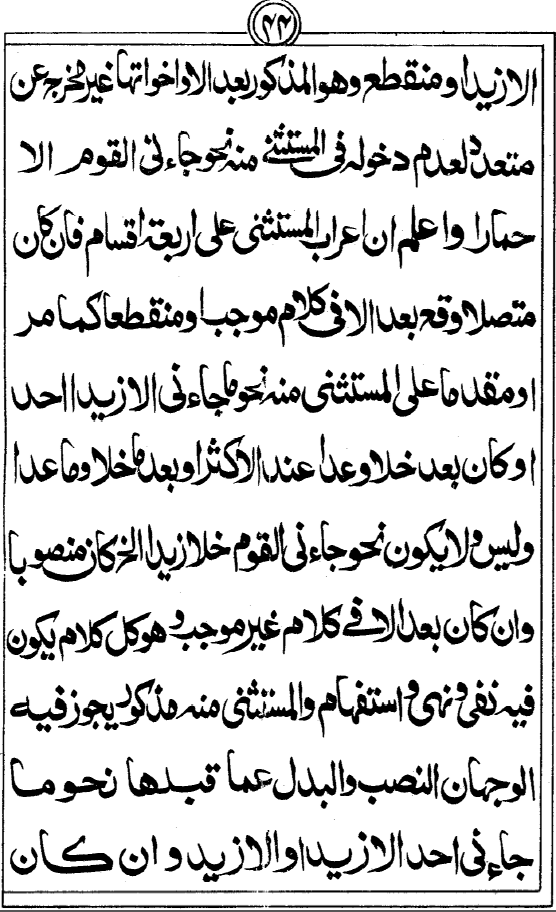 ٤٤
الا زيدا ومنقطع وهو المذكور بعد الا واخواتها غير مخرج عن
متعدد لعدم دخوله فى المستثنى منه نحو جاءنى القوم الا
حمارا واعلم ان اعراب المستثنى على اربعة اقسام فان كان
متصلا وقع بعد الا فى كلام موجب او منقطعا كما مر
او مقدما على المستثنى منه نحو ما جاءنى الا زيدا احد
او كان بعد خلا وعدا عند الاكثر او بعد ما خلا وما عدا
وليس ولا يكون نحو جاءنى القوم خلا زيدا الخ كان منصوبا
وان كان بعد الا فى كلام غير موجب وهو كل كلام يكون
فيه نفى ونهى واستفهام والمستثنى منه مذكور يجوز فيه
الوجهان النصب والبدل عما قبلها نحو ما
جاءنى احد الا زيدا والا زيد وان كان